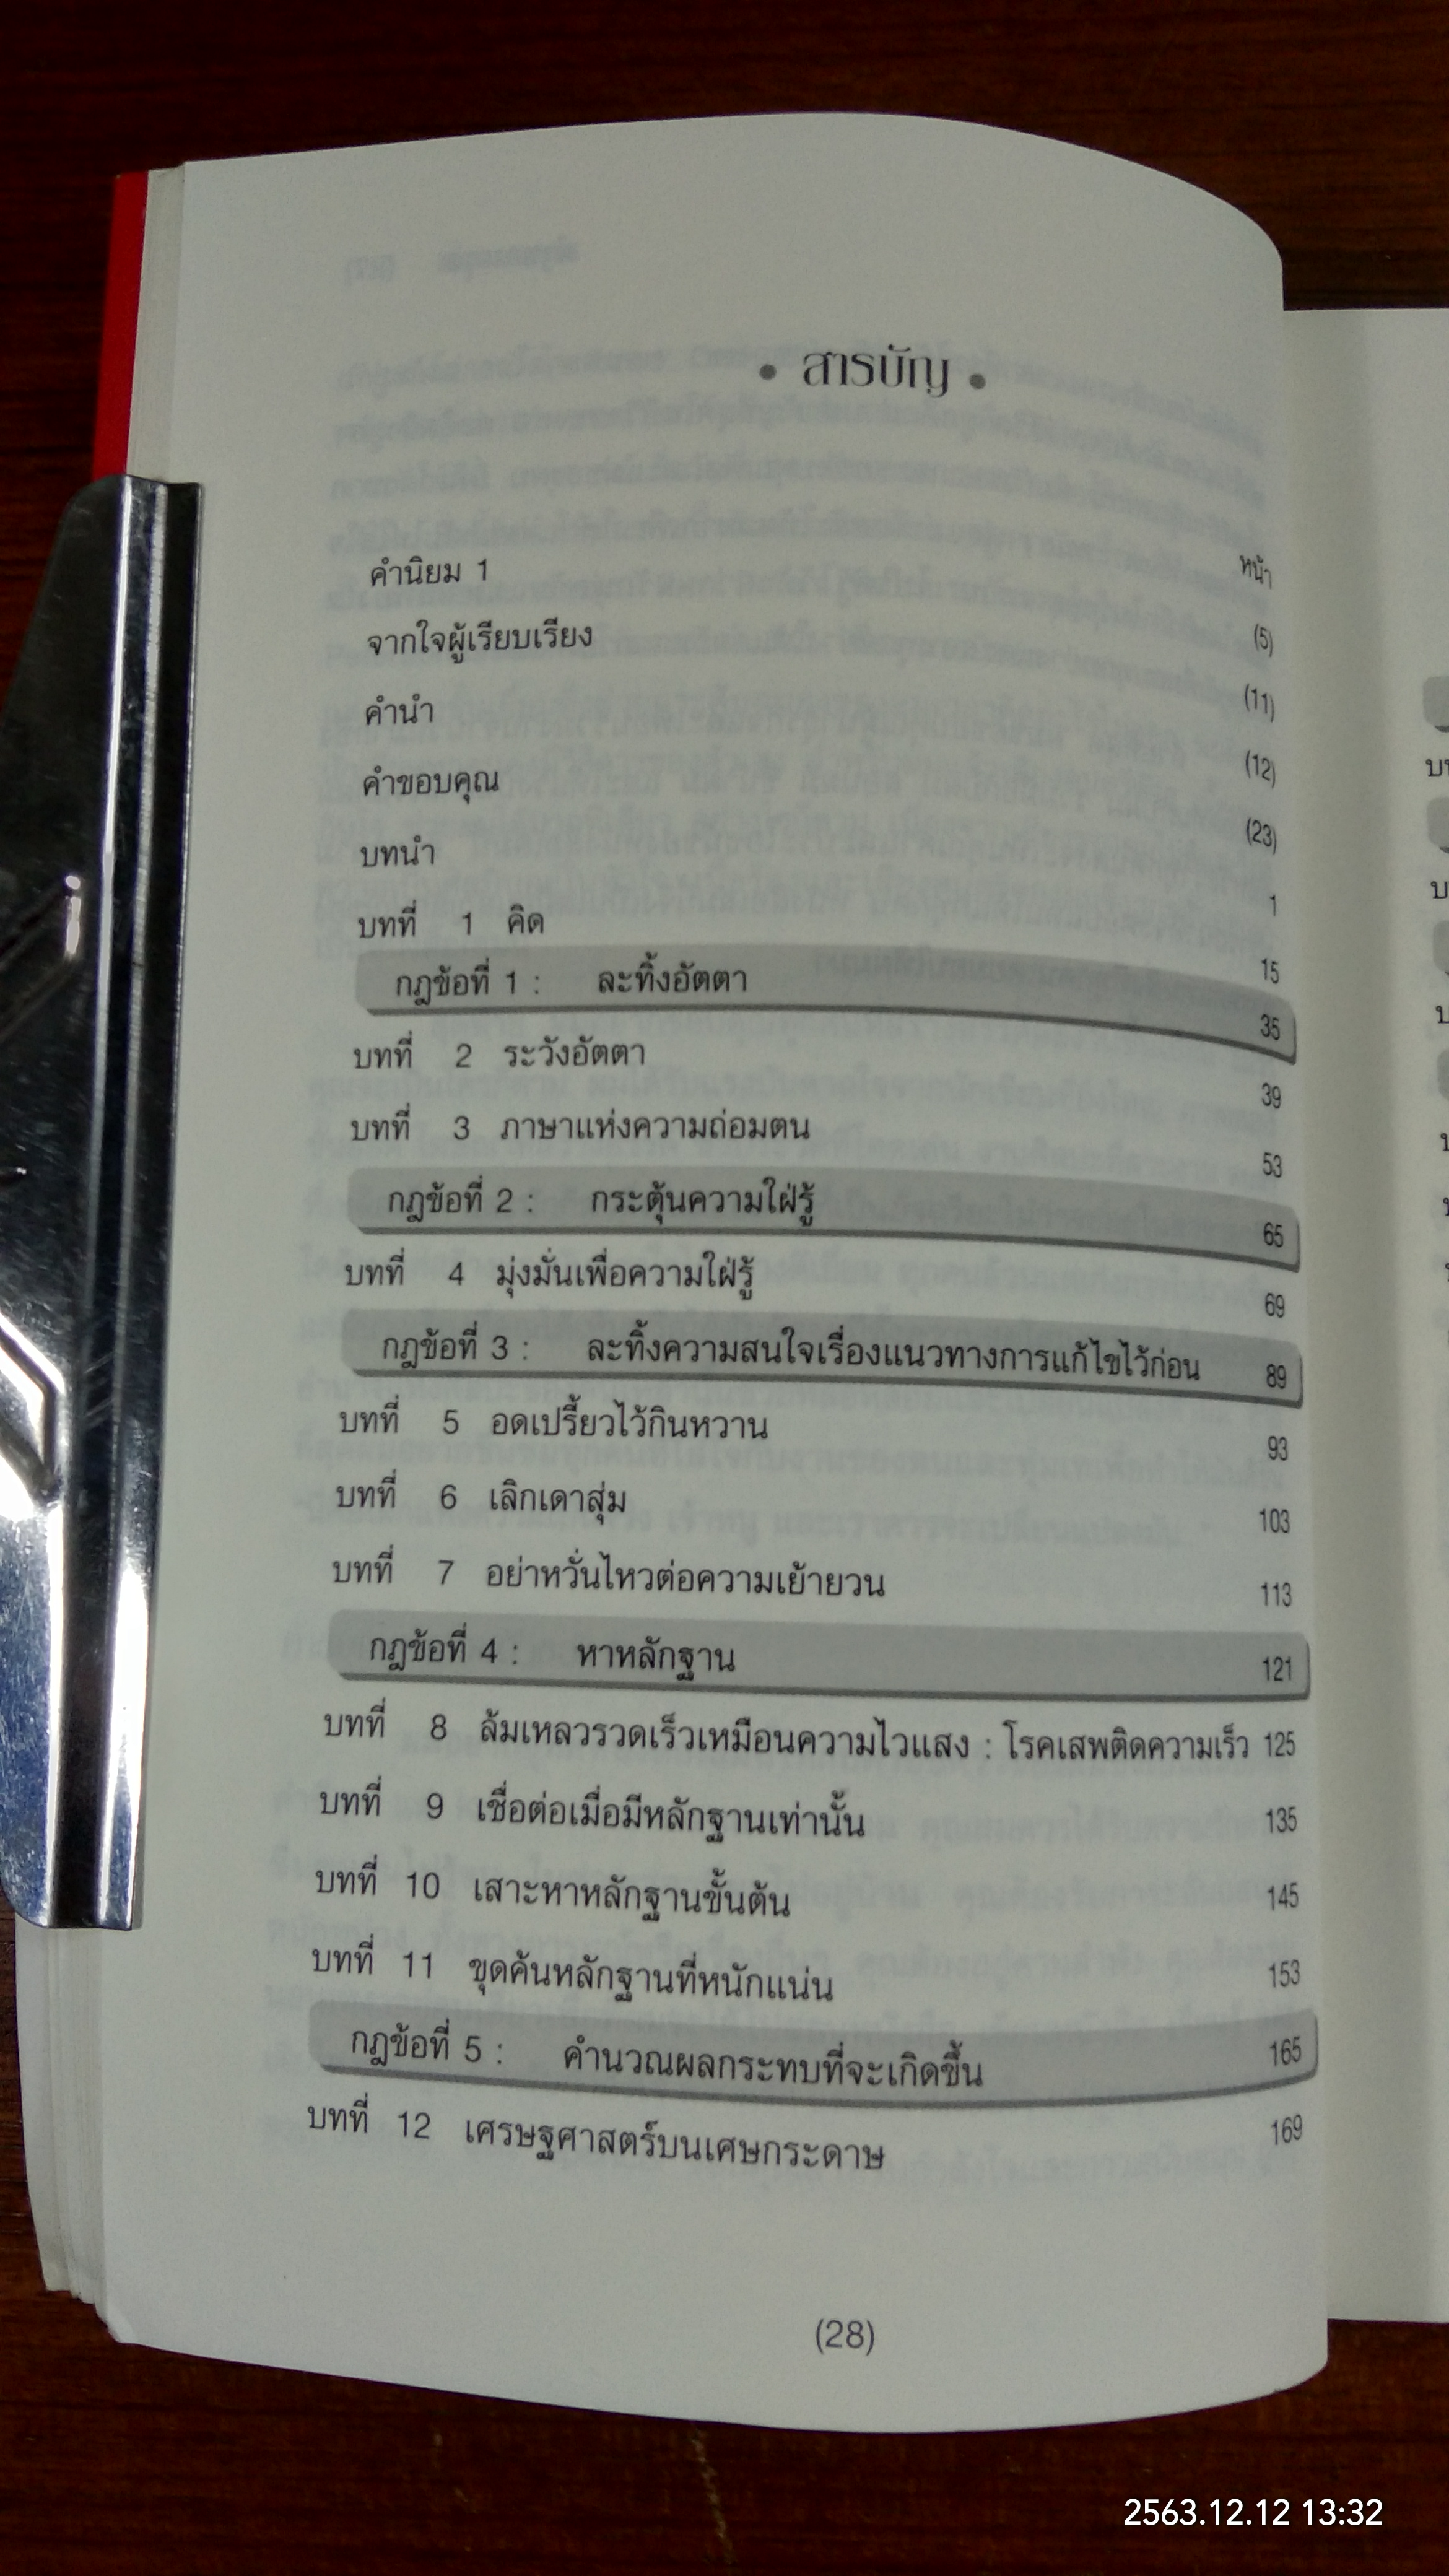 • สารบัญ •
หน้า
คำนิยม 1 (5)
จากใจผู้เรียบเรียง (11)
คำนำ (12)
คำขอบคุณ (23)
บทนำ 1
บทที่ 1 คิด 15
กฎข้อที่ 1 : ละทิ้งอัตตา 35
บทที่ 2 ระวังอัตตา 39
บทที่ 3 ภาษาแห่งความถ่อมตน 53
กฎข้อที่ 2 : กระตุ้นความใฝ่รู้ 65
บทที่ 4 มุ่งมั่นเพื่อความใฝ่รู้ 69
กฎข้อที่ 3 : ละทิ้งความสนใจเรื่องแนวทางการแก้ไขไว้ก่อน 89
บทที่ 5 อดเปรี้ยวไว้กินหวาน 93
บทที่ 6 เลิกเดาสุ่ม 103
บทที่ 7 อย่าหวั่นไหวต่อความเย้ายวน 113
กฎข้อที่ 4 : หาหลักฐาน 121
บทที่ 8 ล้มเหลวรวดเร็วเหมือนความไวแสง : โรคเสพติดความเร็ว 125
บทที่ 9 เชื่อต่อเมื่อมีหลักฐานเท่านั้น 135
บทที่ 10 เสาะหาหลักฐานขั้นต้น 145
บทที่ 11 ขุดค้นหลักฐานที่หนักแน่น 153
กฎข้อที่ 5 : คำนวณผลกระทบที่จะเกิดขึ้น 165
บทที่ 12 เศรษฐศาสตร์บนเศษกระดาษ 169
(28)
2563.12.12 13:32